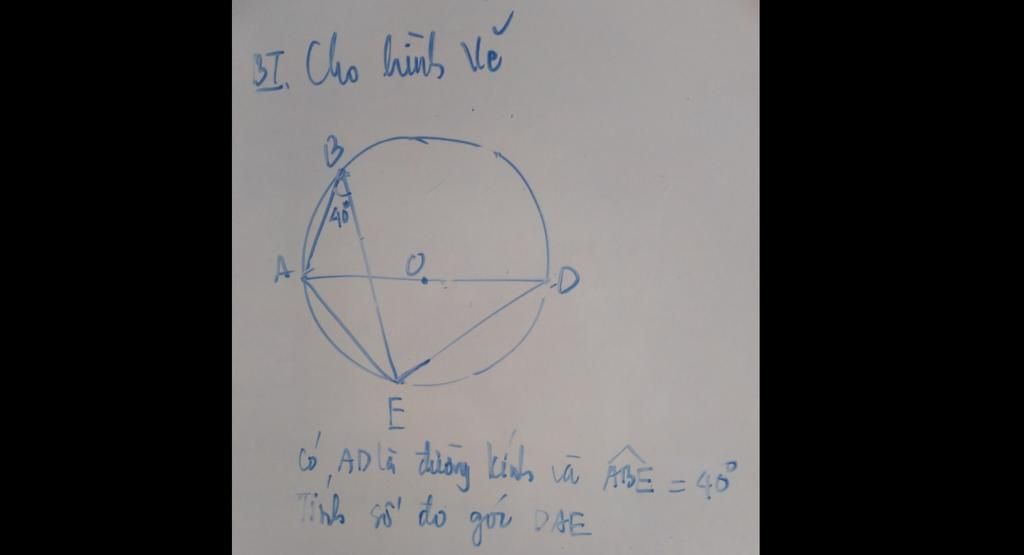 BI. Cho hình vẽ
B
40°
A
O
D
E
Có AD là đường kính và ABE = 40°
Tính số đo góc DAE